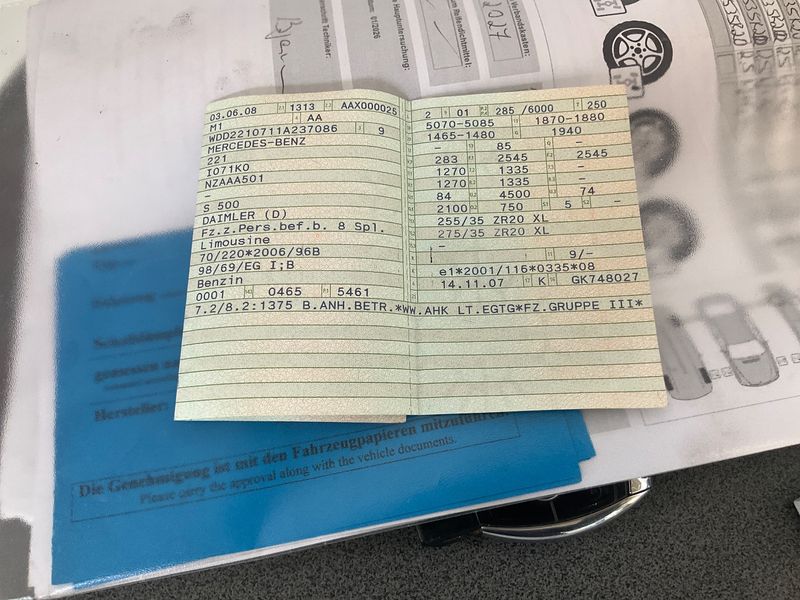 Verbandskasten:
um Reifendichtmittel:
2027
Hauptuntersuchung:
01/2026
Techniker:
03.06.08 1313 AAX000025
M1 AA
WDD2210711A237086 9
MERCEDES-BENZ
221
I071K0
NZAAA501
–
S 500
DAIMLER (D)
Fz.z.Pers.bef.b. 8 Spl.
Limousine
70/220*2006/96B
98/69/EG I;B
Benzin
0001 0465 5461
7.2/8.2:1375 B.ANH.BETR.*WW.AHK LT.EGTG*FZ.GRUPPE III*
2 01 285 /6000 250
5070-5085 1870-1880
1465-1480 1940
– 85 –
283 2545 2545
1270 1335 –
1270 1335 –
84 4500 74
2100 750 5 –
255/35 ZR20 XL
275/35 ZR20 XL
–
9/–
e1*2001/116*0335*08
14.11.07 K GK748027
Hersteller:
Die Genehmigung ist mit den Fahrzeugpapieren mitzuführen.
Please carry the approval along with the vehicle documents.